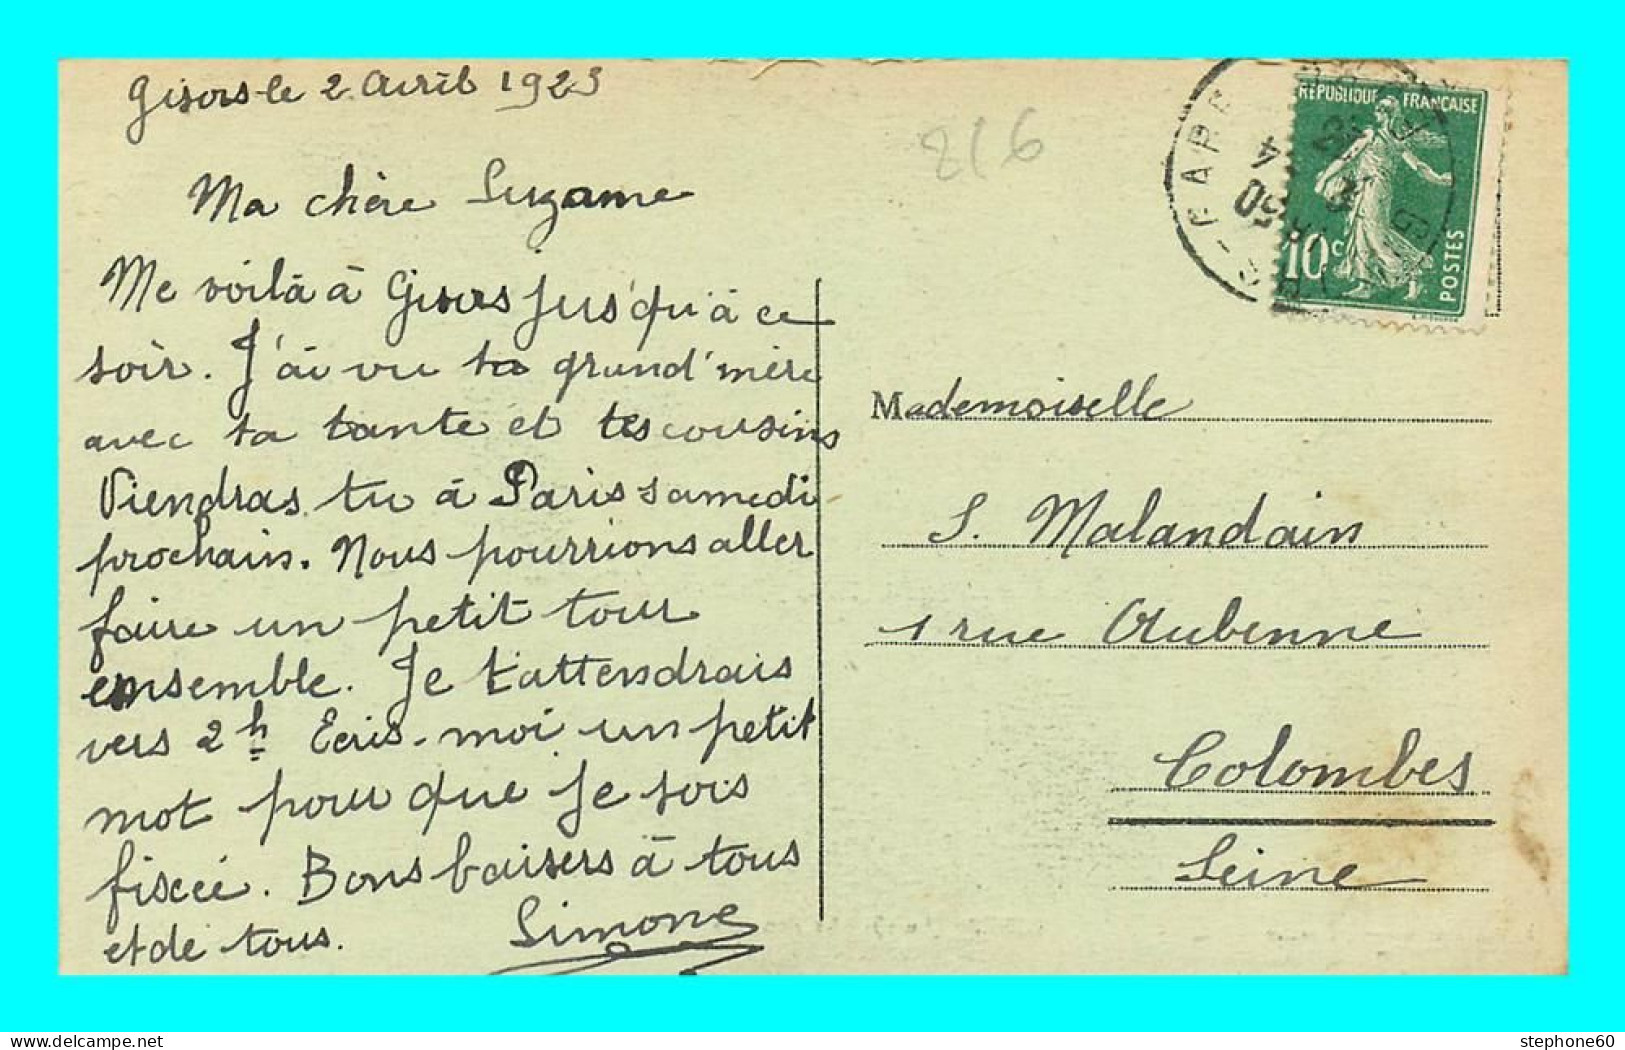 Gisors le 2 Avril 1923
Ma chère Suzanne
Me voilà à Gisors jusqu'à ce
soir. J'ai vu ta grand'mère
avec ta tante et tes cousins
Viendras tu à Paris samedi
prochain. Nous pourrions aller
faire un petit tour
ensemble. Je t'attendrais
vers 2h Ecris-moi un petit
mot pour que je sois
fixée. Bons baisers à tous
et de tous. Simone
216
RÉPUBLIQUE FRANÇAISE
10c
POSTES
Mademoiselle
S. Malandain
1 rue Aubenne
Colombes
Seine
stephone60